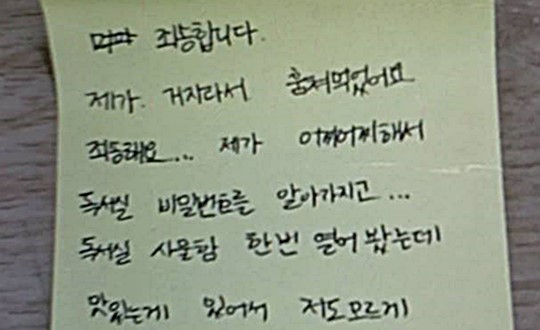 죄송합니다.
제가. 거지라서 훔쳐먹었어요
죄송해요... 제가 어찌어찌해서
독서실 비밀번호를 알아가지고...
독서실 사물함 한번 열어 봤는데
맛있는게 있어서 저도모르게